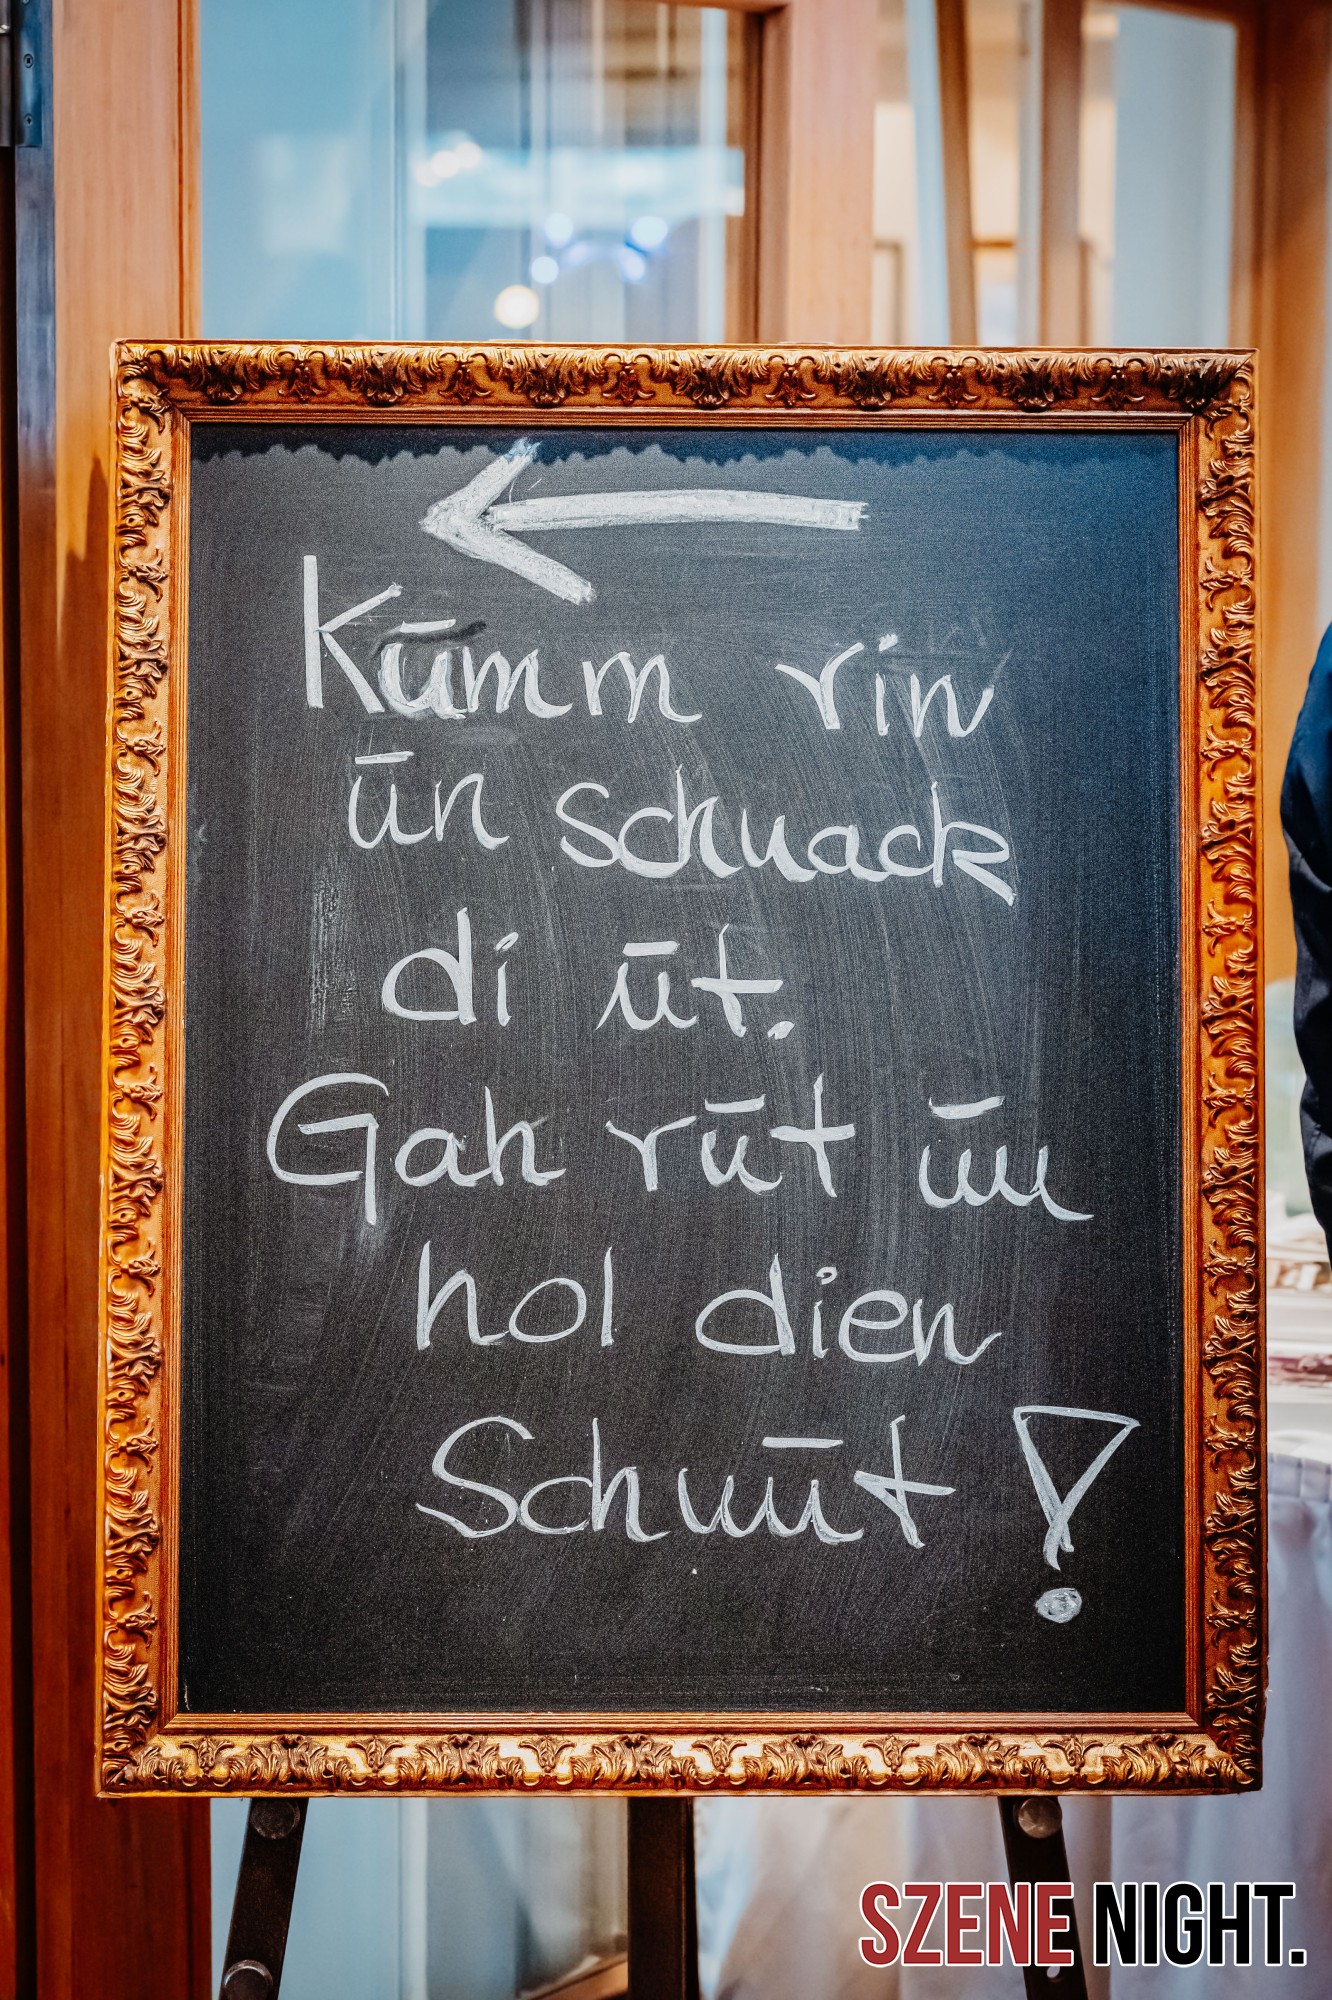 Kūmm rin
ūn schnack
di ūt.
Gah rūt ūn
hol dien
Schnūt!
SZENE NIGHT.